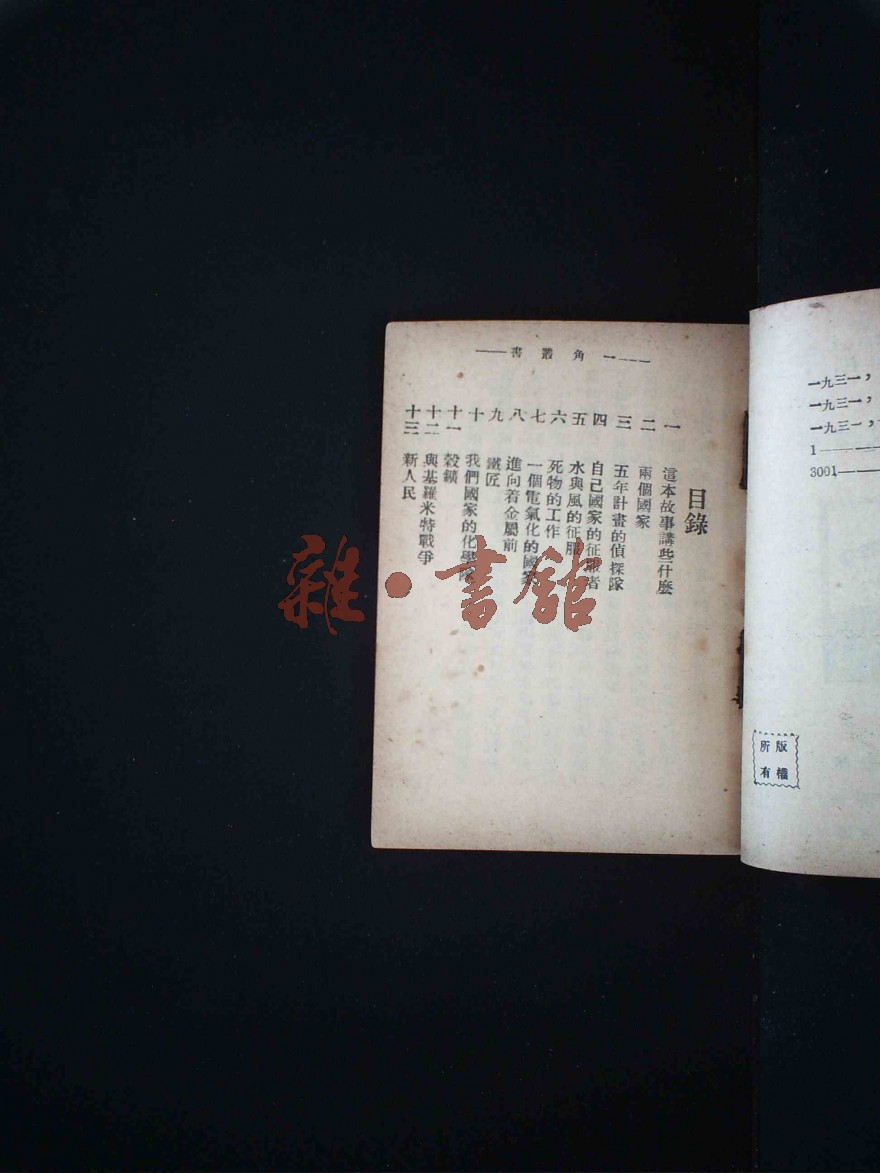 一九三一，
一九三一，
一九三一，
1——
3001——
版權
所有
一角叢書
目錄
一 這本故事講些什麼
二 兩個國家
三 五年計畫的偵探隊
四 自己國家的征服者
五 水與風的征服
六 死物的工作
七 一個電氣化的國家
八 進向着金屬前
九 鐵匠
十 我們國家的化學隊
十一 榖鑛
十二 與基羅米特戰爭
十三 新人民
雜·書館